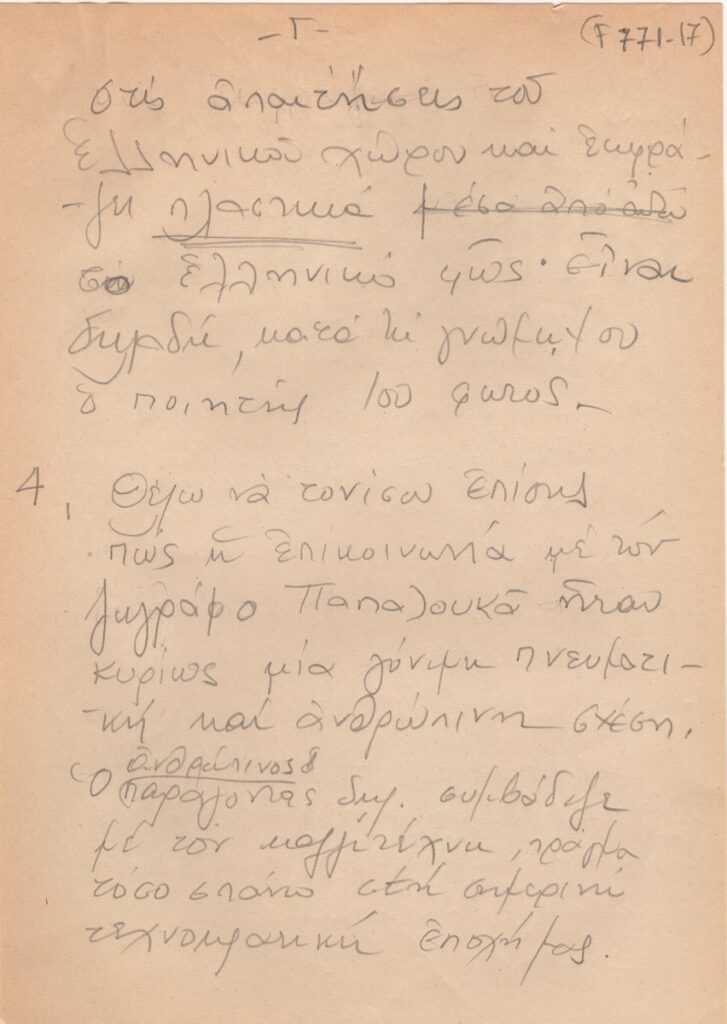 - Γ -
(F 771-17)
στίς ἀπαιτήσεις τοῦ
Ἑλληνικοῦ χώρου καί ἐκφρά-
-ζει πλαστικά μέσα ἀπό αὐτό
τό Ἑλληνικό φῶς. εἶναι
δηλαδή, κατά τή γνώμη μου
ὁ ποιητής τοῦ φωτός.-
4, Θέλω νά τονίσω ἐπίσης
πώς ἡ ἐπικοινωνία μέ τόν
ζωγράφο Παπαλουκᾶ ἦταν
κυρίως μία γόνιμη πνευματι-
-κή καί ἀνθρώπινη σχέση.
ἀνθρώπινος
Ὁ παράγοντας δηλ. συμβάδιζε
μέ τόν καλλιτέχνη, πρᾶγμα
τόσο σπάνιο στή σημερινή
τεχνοκρατική ἐποχή μας.